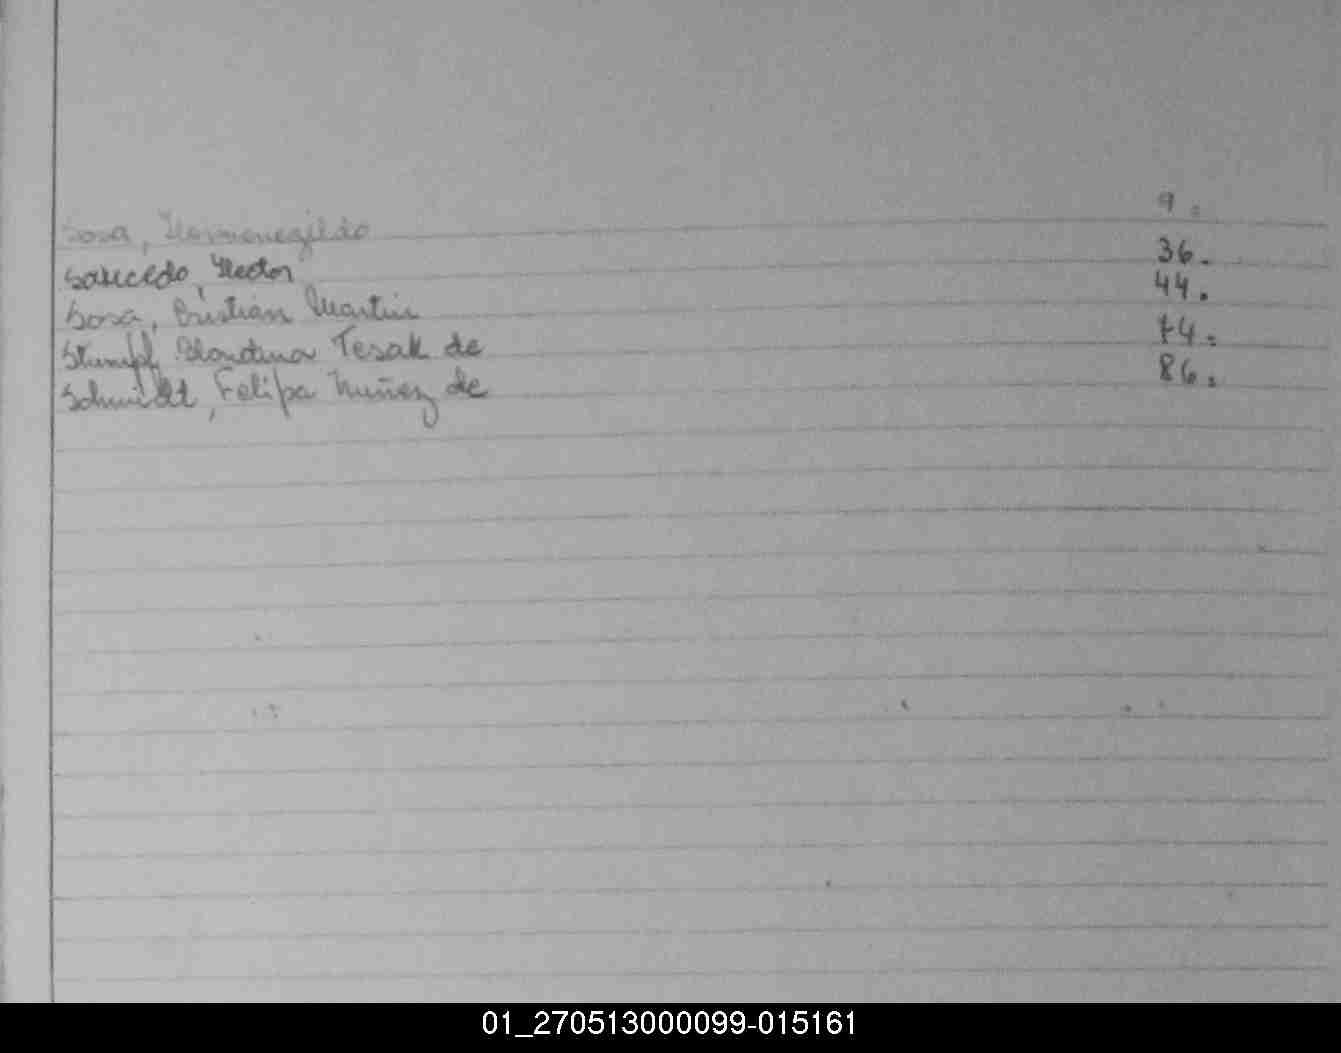 Sosa, Hermenegildo 9.
Saucedo, Hector 36.
Sosa, Cristián Martin 44.
Stumpf, Blandina Tesak de 74.
Schmidt, Felipa Nuñez de 86.
01_270513000099-015161